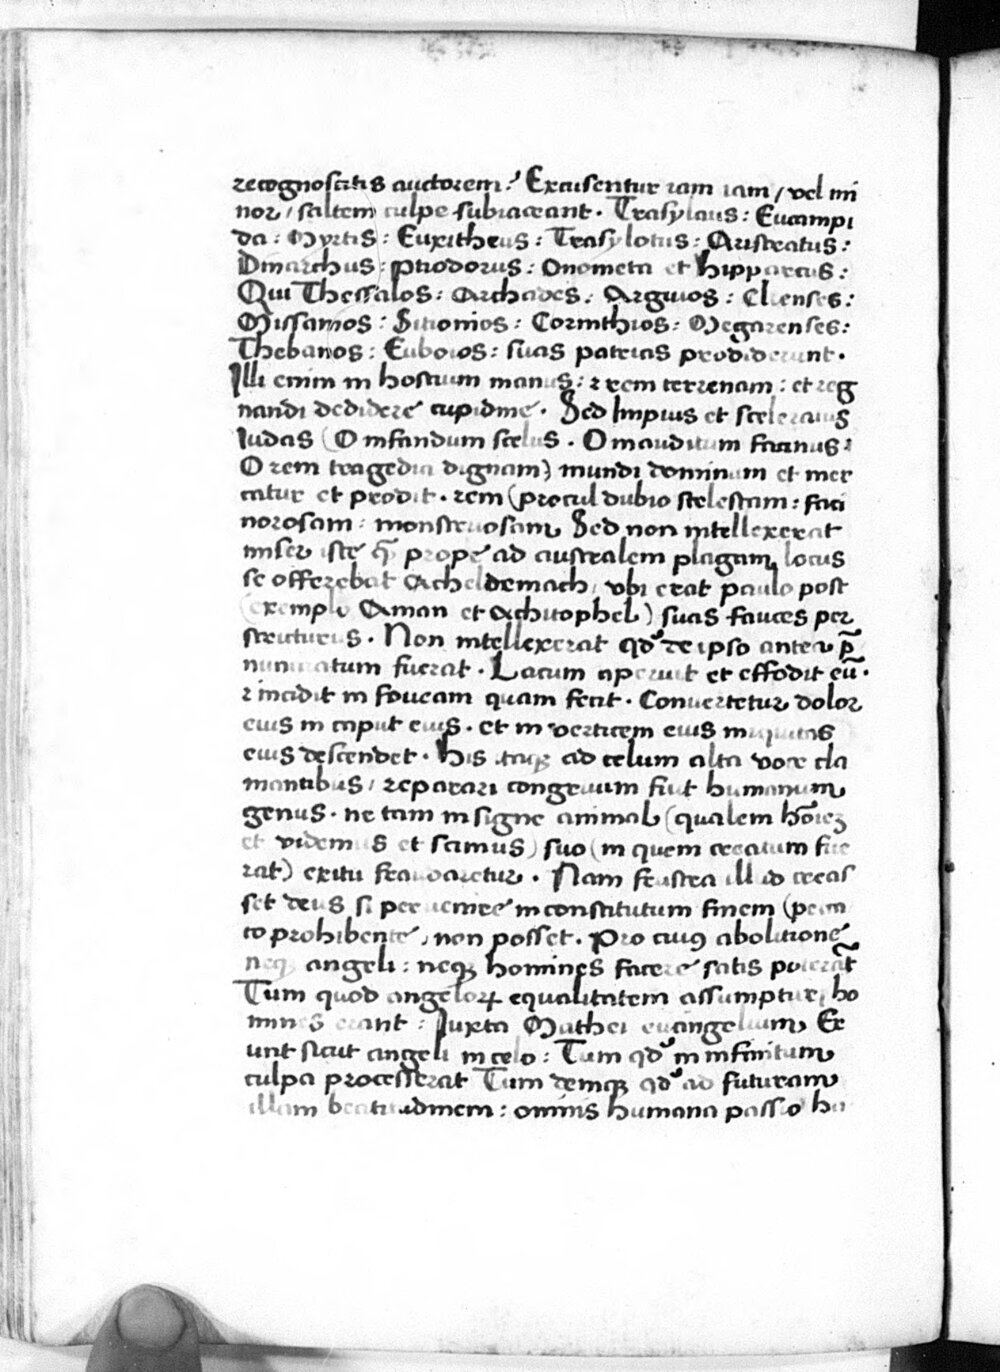 recognoscitis auctorem? Excusentur iam iam / vel mi
nor / saltem culpe subiaceant. Trasylaus: Eucampi
da: Myrtis: Euxitheus: Trasylotus: Aristratus:
Dinarchus: Ptiodorus: Onometa et hipparcus:
Qui Thessalos: Archades: Arguios: Elienses:
Missanios: Sitionios: Corinthios: Megarenses:
Thebanos: Euboios: suas patrias prodiderunt.
Illi enim in hostium manus: rem terrenam: et reg
nandi dedidere cupidine. Sed Impius et sceleratus
Iudas (O infandum scelus. O mauditum facinus:
O rem tragedia dignam) mundi dominum et mer
catur et prodit. rem (procul dubio scelestam: faci
norosam: monstruosam Sed non intellexerat
miser iste prope ad australem plagam locus
se offerebat Acheldemach, vbi erat paulo post
(exemplo Aman et Achitophel) suas fauces per
stricturus. Non intellexerat qd de ipso antea p̄
nunciatum fuerat. Lacum aperuit et effodit eū.
et incidit in foueam quam fecit. Conuertetur dolor
eius in caput eius. et in verticem eius iniquitas
eius descendet. His itaqȝ ad celum alta voce cla
mantibus / reparari congruum fuit humanum
genus. ne tam insigne animal (qualem hōiez
et videmus et scimus) suo (in quem creatum fue
rat) exitu fraudaretur. Nam frustra illud creas
set deus si peruenire in constitutum finem (pecca
to prohibente, non posset. Pro cuiꝰ abolitione
neqȝ angeli: neqȝ homines facere satis poterāt
Tum quod angeloꝝ equalitatem assumpturi ho
mines erant: Iuxta Mathei euangelium Er
unt sicut angeli in celo: Tum qd in infinitum
culpa processerat Tum deniqȝ qd ad futuram
illam beatitudinem: omnis humana passio ha